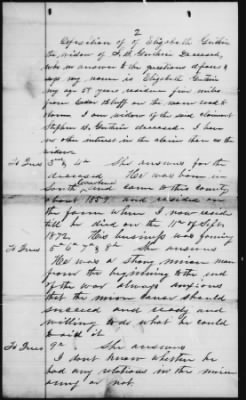 2
Deposition of Elizabeth Guthrie
the widow of S. B. Guthrie Deceased,
who in answer to the questions deposes &
says my name is Elizabeth Guthrie
my age 57 years residence five miles
from Cedar Bluff on the
I am widow of the said claimant
Stephen B. Guthrie deceased. I have
no other interest in the claim than as the
widow.
To Ques 3rd & 4th She answers for the
deceased He was born in
South Carolina and came to this County
about 1859 and resided on
the farm where I now reside
till he died on the 11th of Sept.
1872. His business was farming
To Ques 5th 6th 7th & 8th She answers
He was a strong union man
from the beginning to the end
of the war always anxious
that the union cause should
succeed and ready and
willing to do what he could
to aid it.
To Ques 9th She answers
I dont know whether he
had any relations in the union
army or not.